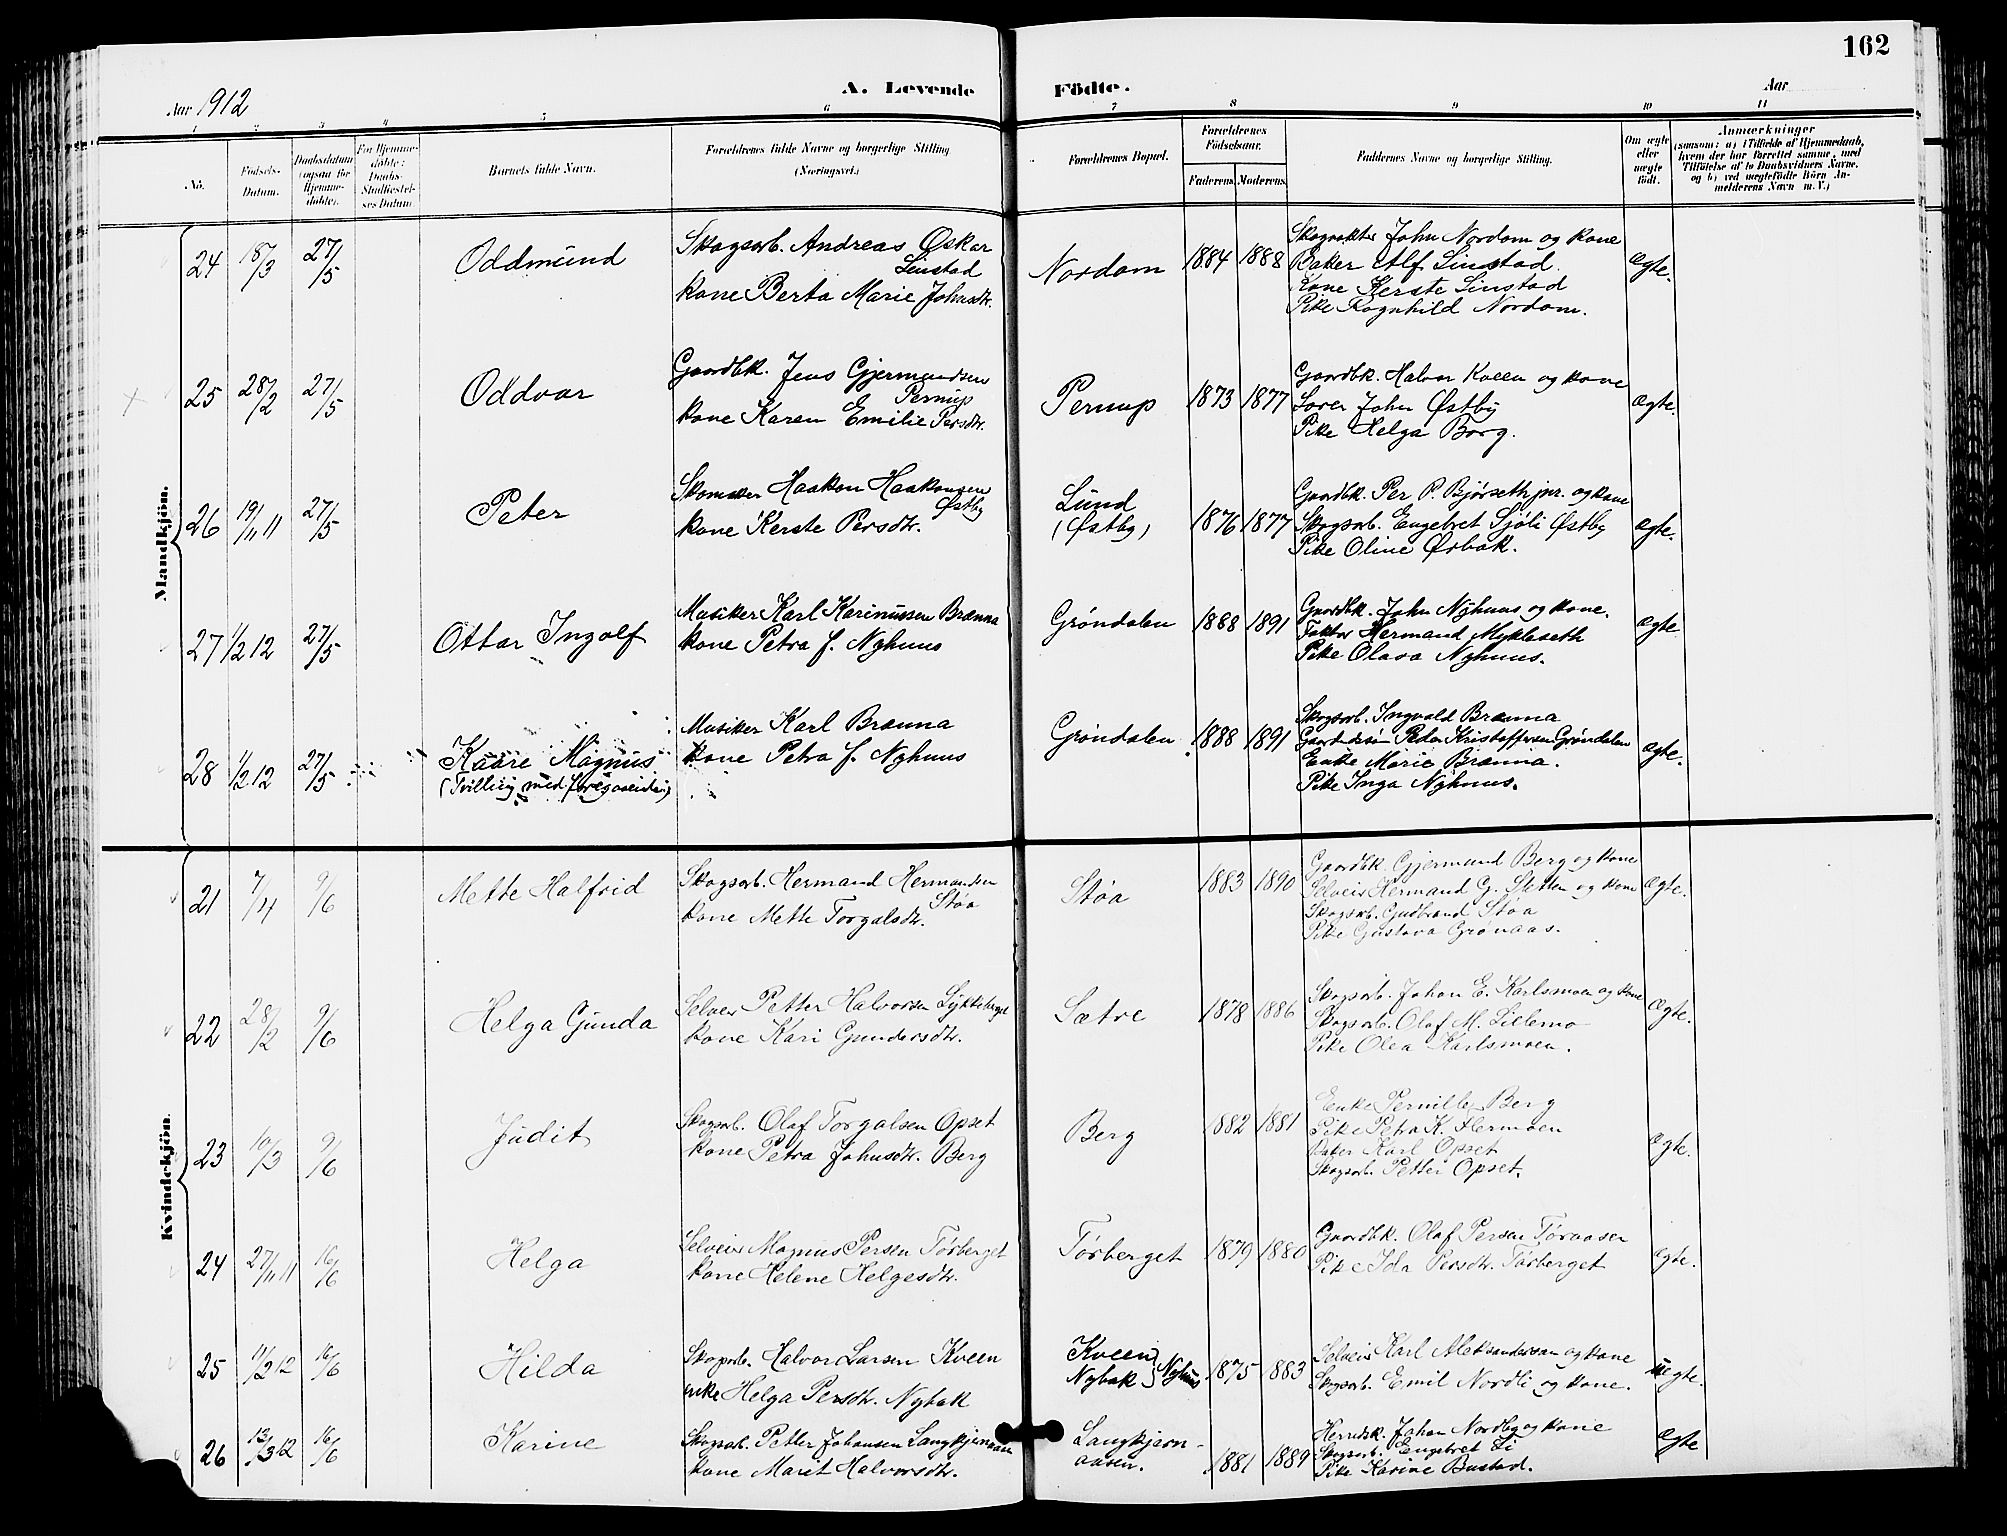 162
A. Levende Födte.
Aar 1912
Aar
1 2 3 4 5 6 7 8 9 10 11
No.
Födsels-Datum.
Daabsdatum (ogsaa for Hjemmedöbte).
For Hjemmedöbte: Daabs-Stadfæstelses Datum
Barnets fulde Navn.
Forældrenes fulde Navne og borgerlige Stilling (Næringsvei.)
Forældrenes Bopæl.
Forældrenes Födselsaar.
Faderens. Moderens.
Faddernes Navne og borgerlige Stilling.
Om ægte eller uægte födt.
Anmærkninger
(saasom: a) i Tilfælde af Hjemmedaab, hvem der har forrettet samme, med Tilföielse af to Daabsvidners Navne. og b) ved uægtefödte Börn Anmelderens Navn m. V.)
Mandkjön.
24 18/3 27/5 Oddmund
Skogsarb. Andreas Oskar Linstad
kone Berta Marie Johnsdtr.
Nordom 1884 1888
Skogvokter John Nordom og kone
Baker Alf Linstad.
Kone Kerste Linstad
Pike Ragnhild Nordom.
Ægte.
25 28/2 27/5 Oddvar
Gaardbk. Jens Gjermundsen Pernup
kone Karen Emilie Persdtr.
Pernup 1873 1877
Gaardbk. Halvor Kveen og kone
Lærer John Østby
Pike Helga Borg.
Ægte.
26 19/11 11 27/5 Peter
Skomaker Haakon Haakonsen Østby
kone Kerste Persdtr.
Lund (Østby) 1876 1877
Gaardbk. Per P. Bjørseth jnr. og kone
Skogsarb. Engebret Sjøli Østby
Pike Oline Ørbak.
Ægte.
27 1/2 12 27/5 Ottar Ingolf
Musiker Karl Karinussen Brænna
kone Petra f. Nyhuus
Grøndalen 1888 1891
Gaardbk. John Nyhuus og kone.
Faktor Hermand Mykleseth
Pike Olava Nyhuus.
Ægte
28 1/2 12 27/5 Kaare Magnus
(Tvilling med foregaaende)
Musiker Karl Brænna
kone Petra f. Nyhuus
Grøndalen 1888 1891
Skogsarb. Ingvald Brænna
Gaardmdsøn Peder Kristoffersen Grøndalen
Enke Marie Brænna.
Pike Inga Nyhuus.
Ægte.
Kvindekjön.
21 7/4 9/6 Mette Halfrid
Skogsarb. Hermand Hermansen Støa
kone Mette Torgalsdtr.
Støa 1883 1890
Gaardbk. Gjermund Berg og kone
Selveier Hermand G. Sletten og kone
Skogsarb. Gudbrand Støa
Pike Gustava Grønaas.
Ægte.
22 28/2 9/6 Helga Gunda
Selveier Petter Halvorsen Lykkeberget
kone Kari Gundersdtr.
Sætre 1878 1886
Skogsarb. Johan E. Karlsmoen og kone
Skogsarb. Olaf M. Lillemo
Pike Olea Karlsmoen.
Ægte.
23 10/3 9/6 Judit
Skogsarb. Olaf Torgalsen Opset
kone Petra Johnsdtr. Berg
Berg 1882 1881
Enke Pernille Berg
Pike Petra K. Hermoen
Baker Karl Opset
Skogsarb. Petter Opset.
Ægte.
24 27/11 11 16/6 Helga
Selveier Magnus Persen Tørberget
kone Helene Helgesdtr.
Tørberget 1879 1880
Gaardbk. Olaf Persen Tøraasen
Pike Ida Persdtr. Tørberget
Ægte.
25 11/2 12 16/6 Hilda
Skogsarb. Halvor Larsen Kveen
enke Helga Persdtr. Nybak
Kveen Nybak } Nyhuus 1875 1883
Selveier Karl Aleksandersen og kone
Skogsarb. Emil Nordli og kone.
uægte.
26 13/3 12 16/6 Karine
Skogsarb. Petter Johansen Langkjernaasen
kone Marit Halvorsdtr.
Langkjern-aasen. 1881 1889
Herredsk. Johan Nordby og kone
Skogsarb. Engebret Li
Pike Karine Bustad.
Ægte